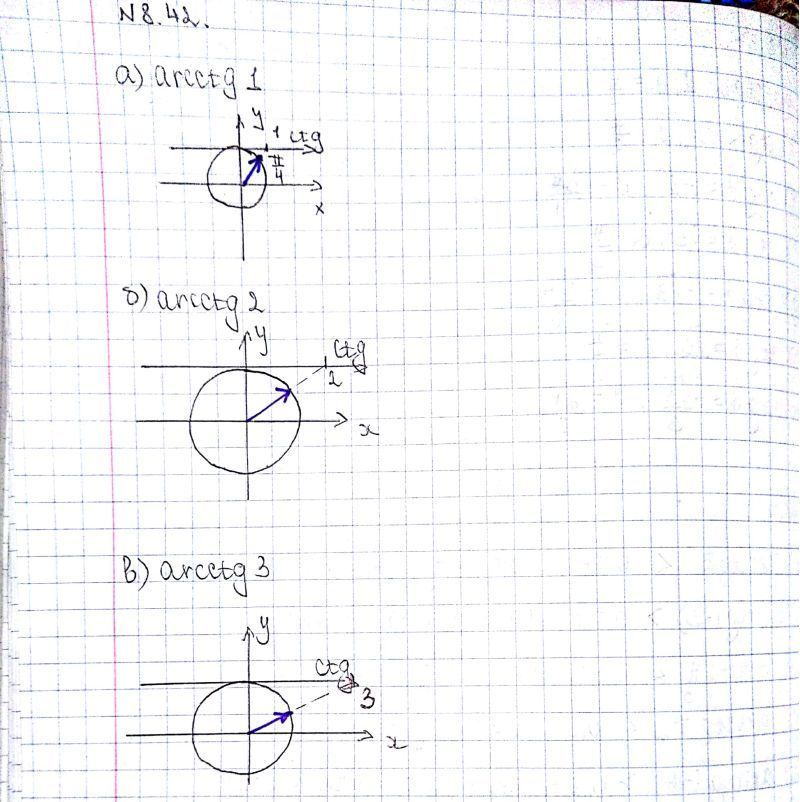 N 8.42.
а) arcctg 1
y
1 ctg
π/4
x
б) arcctg 2
y
ctg
2
x
в) arcctg 3
y
ctg
3
x